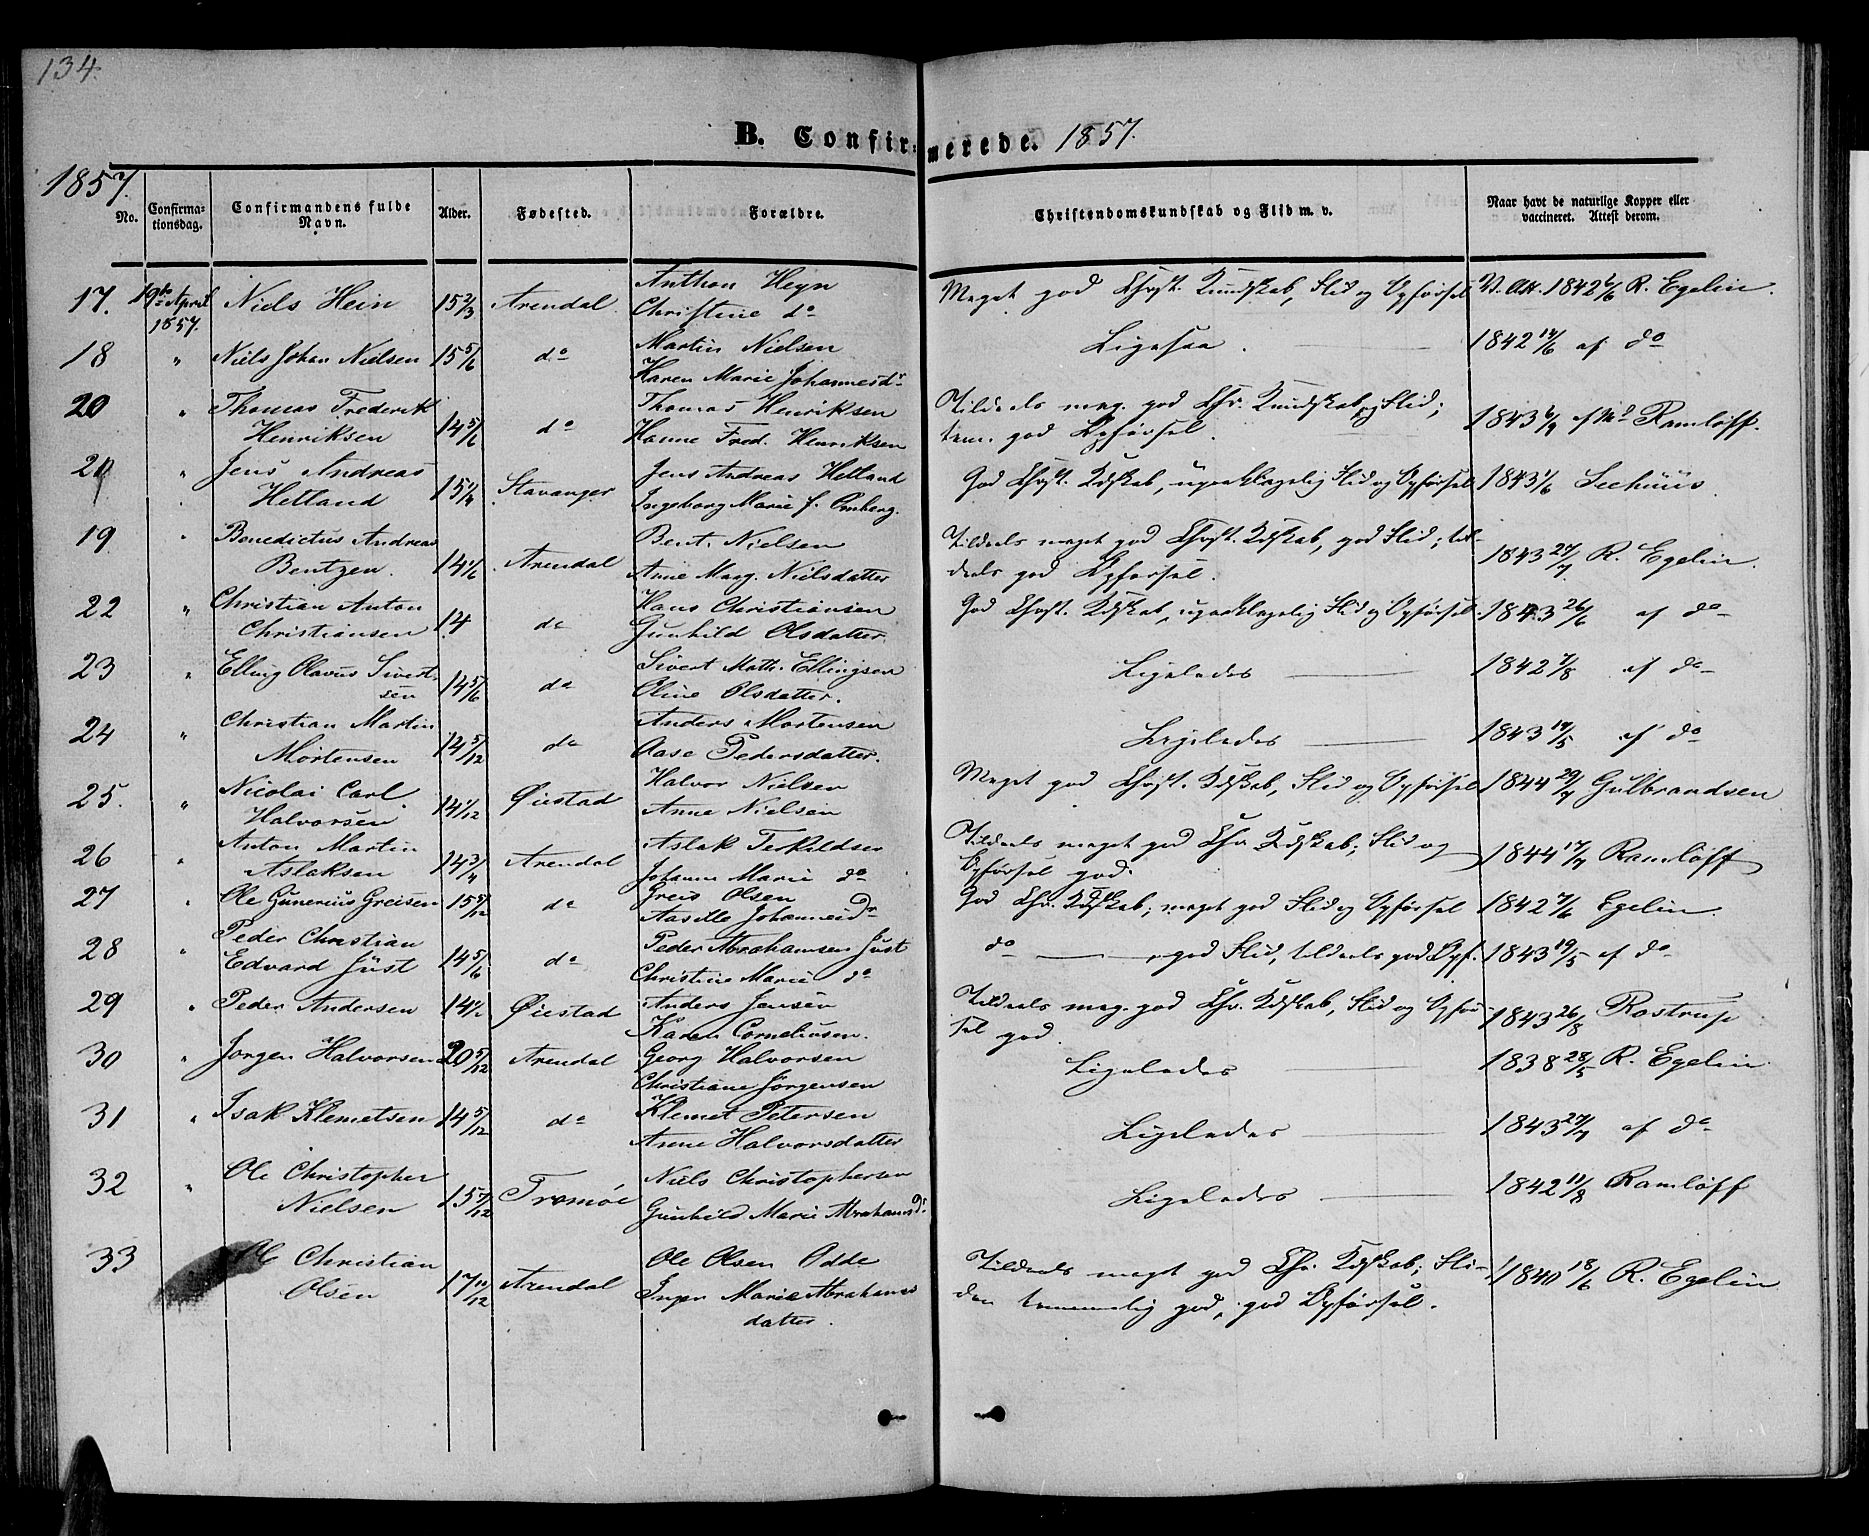 134.
B. Confirmerede. 1857.
1857.
No.
Confirmationsdag.
Confirmandens fulde Navn.
Alder.
Fødested.
Forældre.
Christendomskundskab og Flid m. v.
Naar havt de naturlige Kopper eller vaccineret. Attest derom.
17. 19de April 1857. Niels Hein 15 2/3 Arendal. Anthon Heyn Christine do Meget god Chrst. Kundskab, Flid og Opførsel V. Att. 1842 6/6 R. Egelin.
18 " Niels Johan Nielsen 15 5/6 do Martin Nielsen Karen Marie Johannesdr Ligesaa. 1842 14/6 af do
20 " Thomas Frederik Henriksen 14 5/6 do Thomas Henriksen Hanne Fred. Henriksen Tildeels meg. god Chr. Kundskab og Flid; tem. god Opførsel. 1843 Ramløff.
21 " Jens Andreas Hetland 15 1/4 Stavanger Jens Andreas Hetland Ingeborg Marie f. Omberg. God Chrst. Kdskab, upaaklagelig Flid og Opførsel 1843 1/6 Seehuus.
19 " Benedictus Andreas Bentzen. 14 1/6 Arendal Bent. Nielsen Anne Marg. Nielsdatter Tildeels meget god Chrst. Kdskab, god Flid; tildeels god Opførsel. 1843 27/7 R. Egelin.
22 " Christian Anton Christiansen 14 do Hans Christiansen Gunhild Olsdatter God Chrst. Kdskab, upaaklagelig Flid og Opførsel. 1843 26/6 af do
23 " Elling Olavus Sivertsen 14 5/6 do Sivert Math. Ellingsen Oline Olsdatter. Ligeledes 1842 7/8 af do
24 " Christian Martin Mortensen 14 5/12 do Anders Mortensen Aase Pedersdatter. Ligeledes 1843 19/5 af do
25. " Nicolai Carl Halvorsen 14 1/12 Øiestad Halvor Nielsen Anne Nielsen Meget god Chrst. Kdskab, Flid og Opførsel 1844 29/7 Gulbrandsen
26 " Anton Martin Aslaksen 14 3/4 Arendal Aslak Terkildsen Johanne Marie do Tildeels meget god Chr. Kdskab; Flid og Opførsel god. 1844 17/7 Ramløff
27 " Ole Gunerius Greisen 15 5/12 do Greis Olsen Aasille Johannesdr God Chr. Kdskab; meget god Flid og Opførsel 1842 7/6 Egelin.
28 " Peder Christian Edvard Just 14 5/6 do Peder Abrahamsen Just Christine Marie do do god Flid, tildeels god Opf. 1843 19/5 af do
29 " Peder Andersen 14 1/2 Øiestad Anders Jansen Karen Corneliusen. Tildeels meg. god Chr. Kdskab, Flid og Opførsel god. 1843 26/8 Rostrup
30 " Jørgen Halvorsen 20 5/12 Arendal Georg Halvorsen Christiane Jørgensen Ligeledes 1838 28/5 R. Egelin
31 " Isak Klemetsen 14 5/12 do Klemet Petersen Anne Halvorsdatter Ligeledes 1843 27/7 af do
32 " Ole Christopher Nielsen 15 7/12 Tromøe Niels Christophersen Gunhild Marie Abrahamsdr Ligeledes 1842 11/8 Ramløff
33 Ole Christian Olsen 17 11/12 Arendal Ole Olsen Odde Inger Marie Abrahamsdatter. Tildeels meget god Chr. Kdskab; Fliden temmelig god, god Opførsel. 1840 18/6 R. Egelin